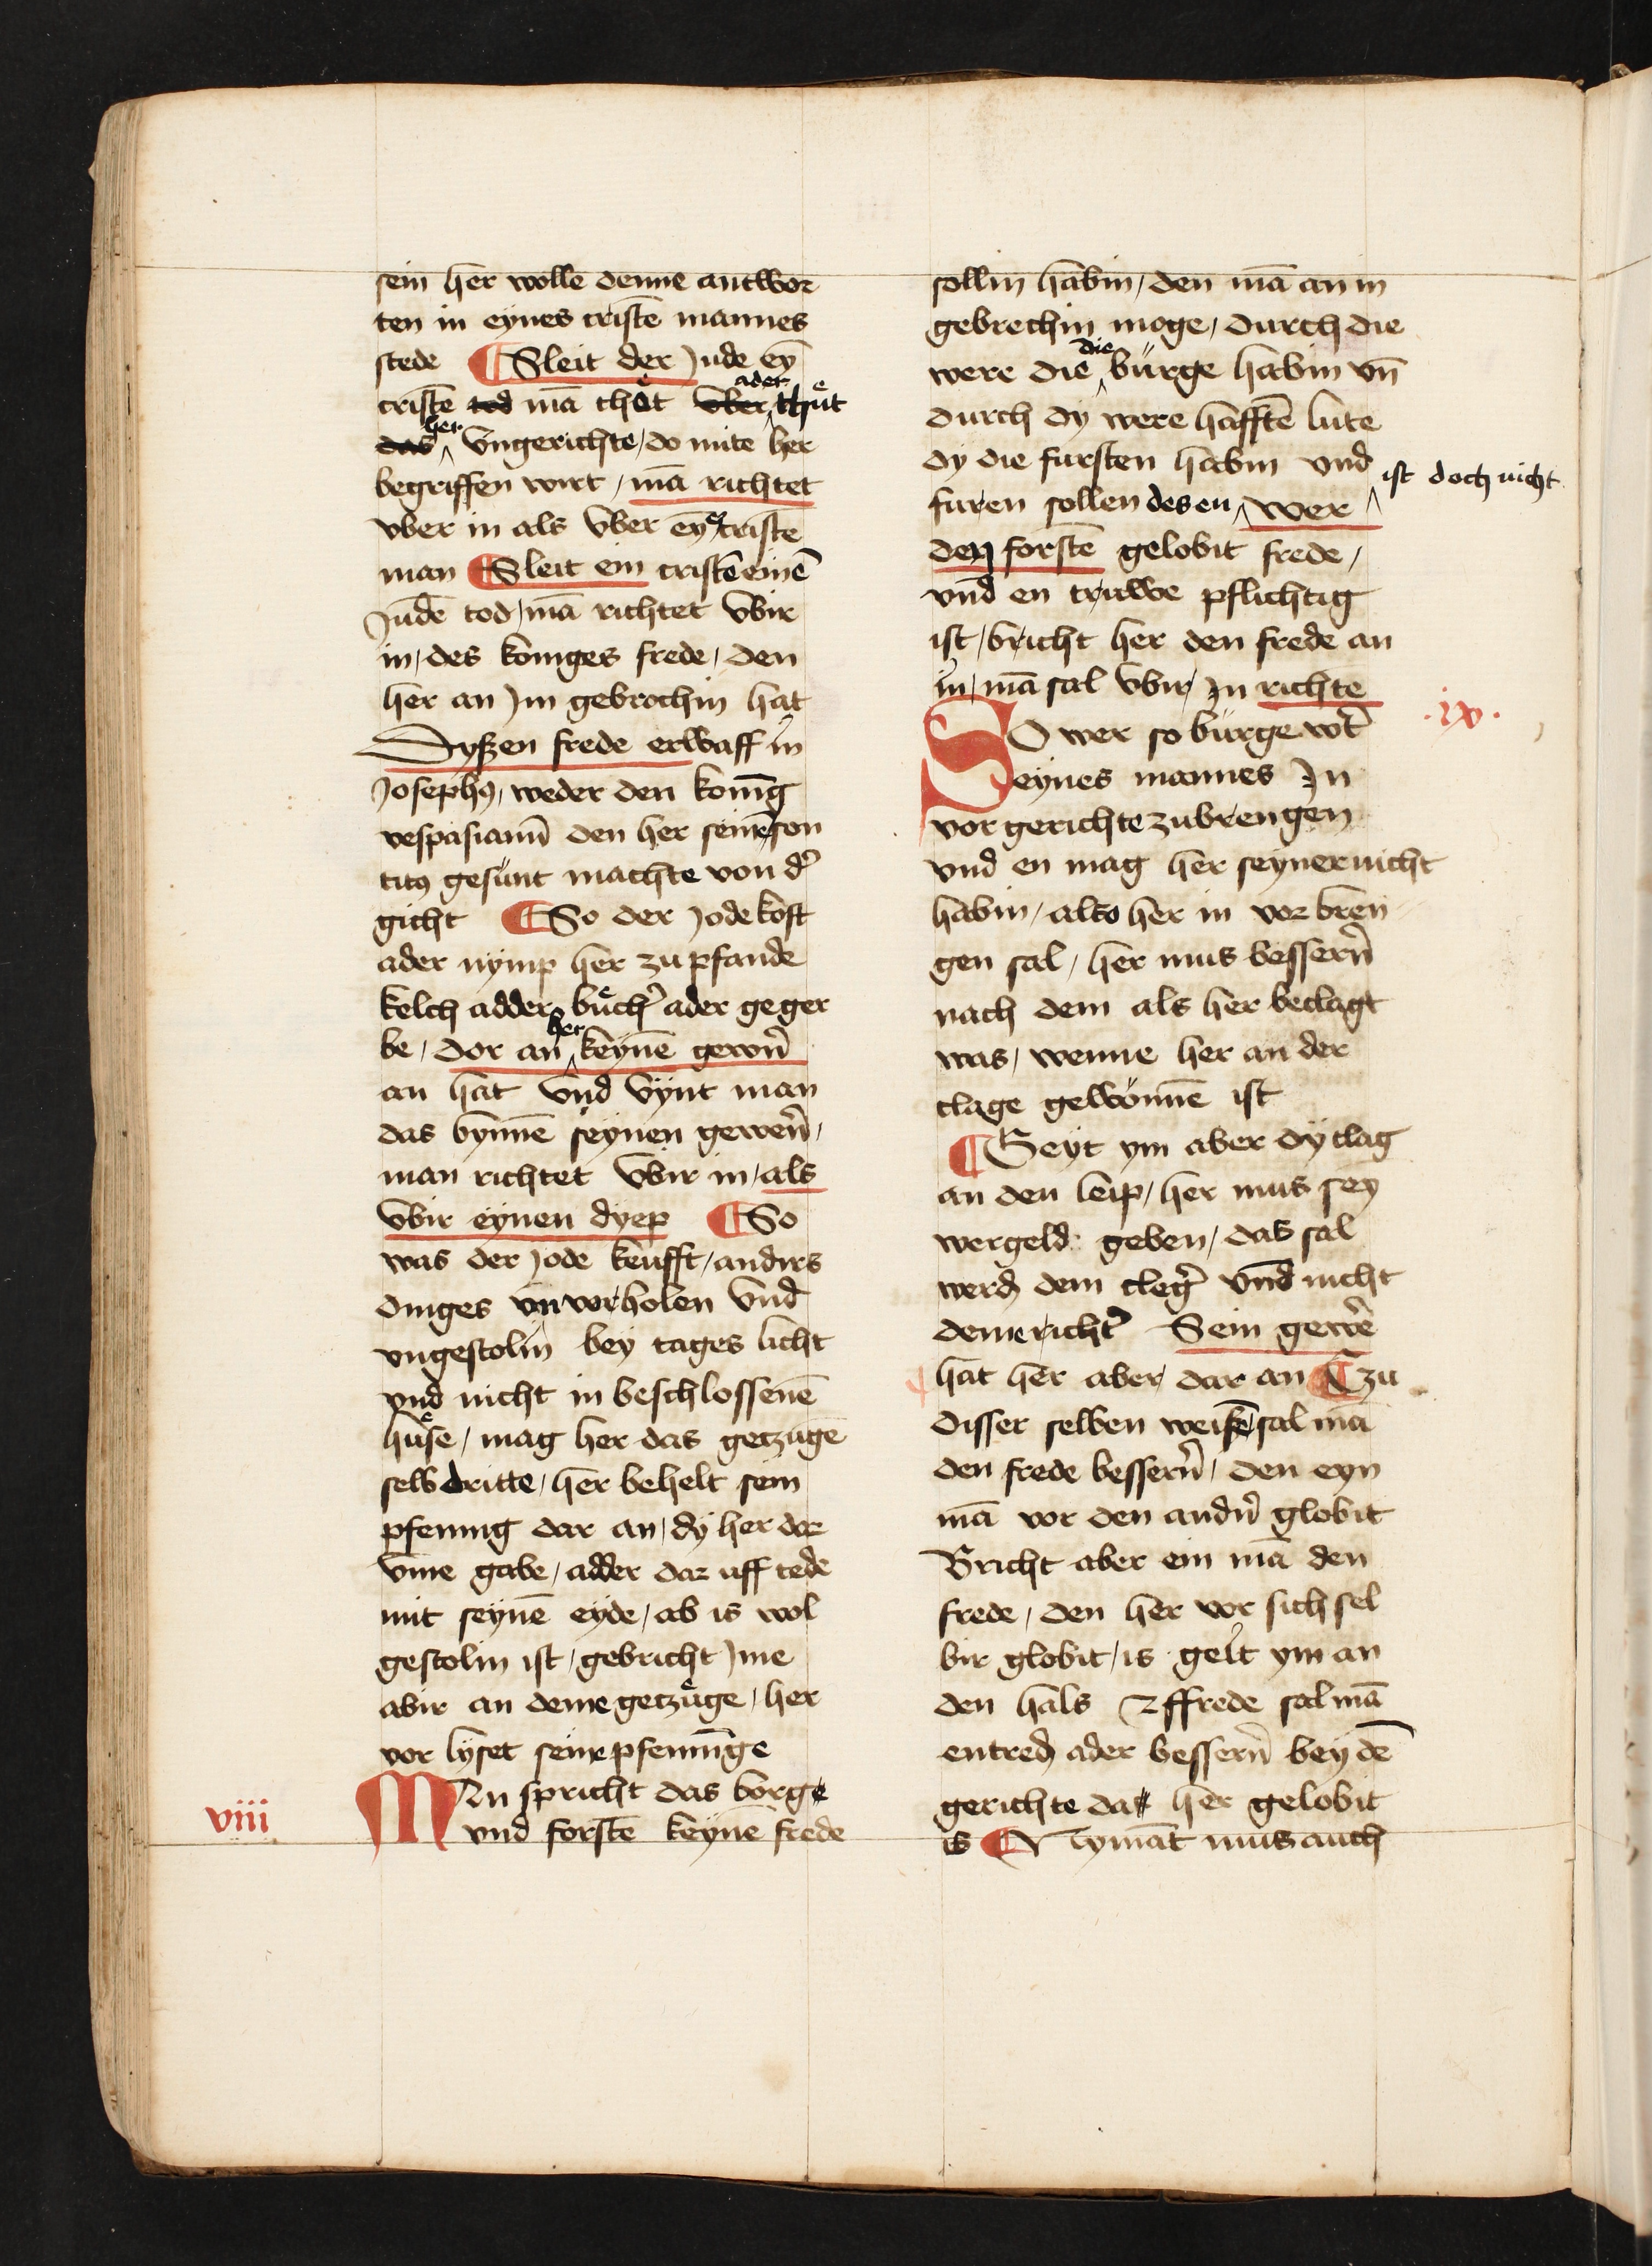 sein her wolle denne antwor
ten in eynes cristē mannes
stede ¶ Sleit der Jude eȳ
cristē tod mā thͤot vber ader thuͤt
das her vngerichte / do mite her
begriffen wirt / mā richtet
vber in als vber eyͤ cristē
man ¶ Sleit ein cristē einē
Judē tod / mā richtet vbir
in / des koniges frede / den
her an Jm gebrochin hat
Dyszen frede erwaff in
Josephꝰ / weder den konig
vespasianū den her seinē son
titꝰ gesunt machte von d'
gicht ¶ So der Jode koft
ader nymp her zu pfande
kelch adder buͤch' ader geger
be / dor an her keynē gewer̄
an hat vnd vynt man
das bynnē seynen gewer̄ /
man richtet vbir in / als
vbir eynen dyep ¶ So
was der Jode keufft / andirs
dinges vnvorholen vnd
vngestolin bey tages licht
vnd nicht in beschlossenē
huͤse / mag her das getzugē
selb dritte / her behelt sein
pfennig dar an / dy her dor
vme gabe / adder dar uff tede
mit seynē eyde / ab is wol
gestolin ist / gebricht Jme
abir an deme getzuͤge / her
vor lyset seine pfennīge
viii
Nu spricht das borge
vnd forstē keynē frede
sollin habin / den mā an in
gebrechin moge / durch die
were die die bürge habin vn̄
durch dy were hafftē lute
dy die fursten habin vnd
furen sollen des en wer ist doch nicht
den forstē gelobit frede /
vnd en truwe pflichtig
ist / bricht her den frede an
in / mā sal vbir Jn richtē
ix.
SO wer so bürge w't
eynes mannes Jn
vor gerichte zu brengen
vnd en mag her seyner nicht
habin / also her in vor bren
gen sal / her mus bessern̄
nach dem als her beclagt
was / wenne her an der
clage gewonnē ist
¶ Geyt ym aber dy clag
an den leip / her mus sey
wergeld geben / das sal
werdē dem cleg' vnd nicht
deme richt' Sein gewe'
hat her aber dar an ¶ Czu
disser selben weise sal mā
den frede bessern̄ / den eyn
mā vor den andn̄ globit
Bricht aber ein mā den
frede / den her vor sich sel
bir globit / is gelt ym an
den hals ffrede sal mā
entredē ader bessern̄ bey dē
gerichte dar her gelobit
is ¶ Nymāt mus auch